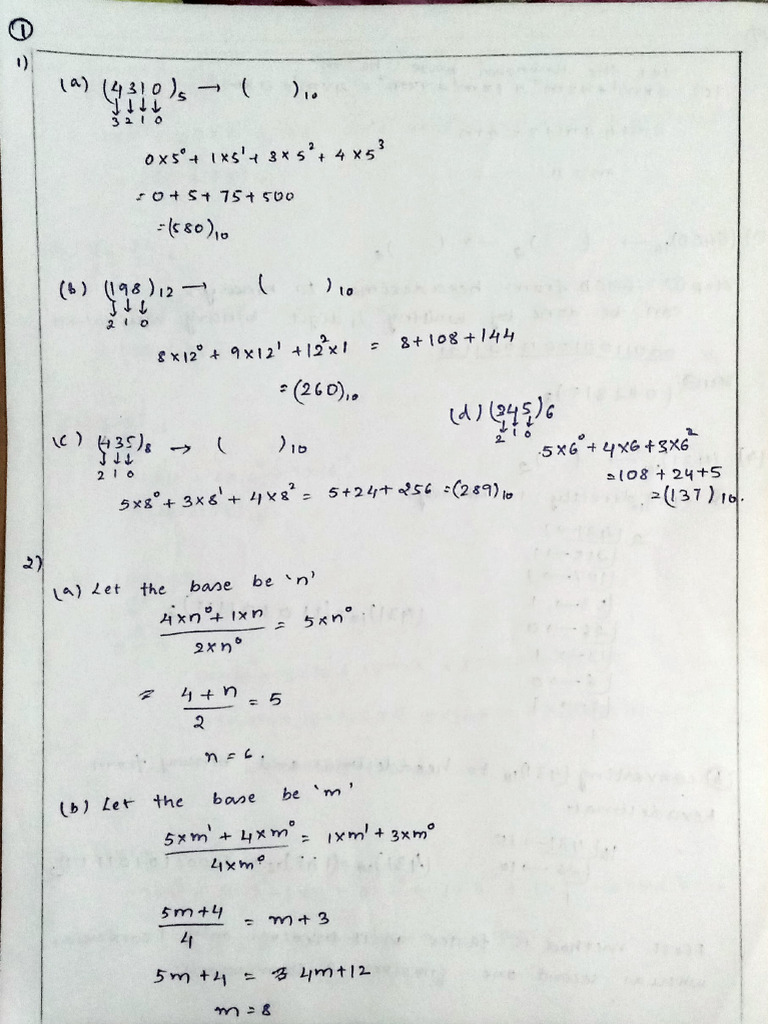 1
1)
(a) (4310)₅ → ( )₁₀
3 2 1 0
0×5⁰ + 1×5¹ + 3×5² + 4×5³
= 0 + 5 + 75 + 500
= (580)₁₀
(b) (198)₁₂ → ( )₁₀
2 1 0
8×12⁰ + 9×12¹ + 12²×1 = 8+108+144
= (260)₁₀
(c) (435)₈ → ( )₁₀
2 1 0
5×8⁰ + 3×8¹ + 4×8² = 5+24+256 = (289)₁₀
(d) (345)₆
2 1 0
5×6⁰ + 4×6 + 3×6²
= 108 + 24 + 5
= (137)₁₀.
2)
(a) Let the base be 'n'
4×n⁰ + 1×n / 2×n⁰ = 5×n⁰
= 4 + n / 2 = 5
n = 6.
(b) Let the base be 'm'
5×m¹ + 4×m⁰ / 4×m⁰ = 1×m¹ + 3×m⁰
5m+4 / 4 = m + 3
5m + 4 = 4m+12
m = 8